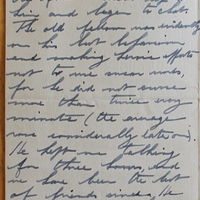 him and began to chat.
The old fellow was evidently
on his best behaviour
and making heroic efforts
not to use swear words,
for he did not swear
more than twice every
minute (the average
rose considerably later on).
He kept me talking
for three hours, and
we have been the best
of friends since. He